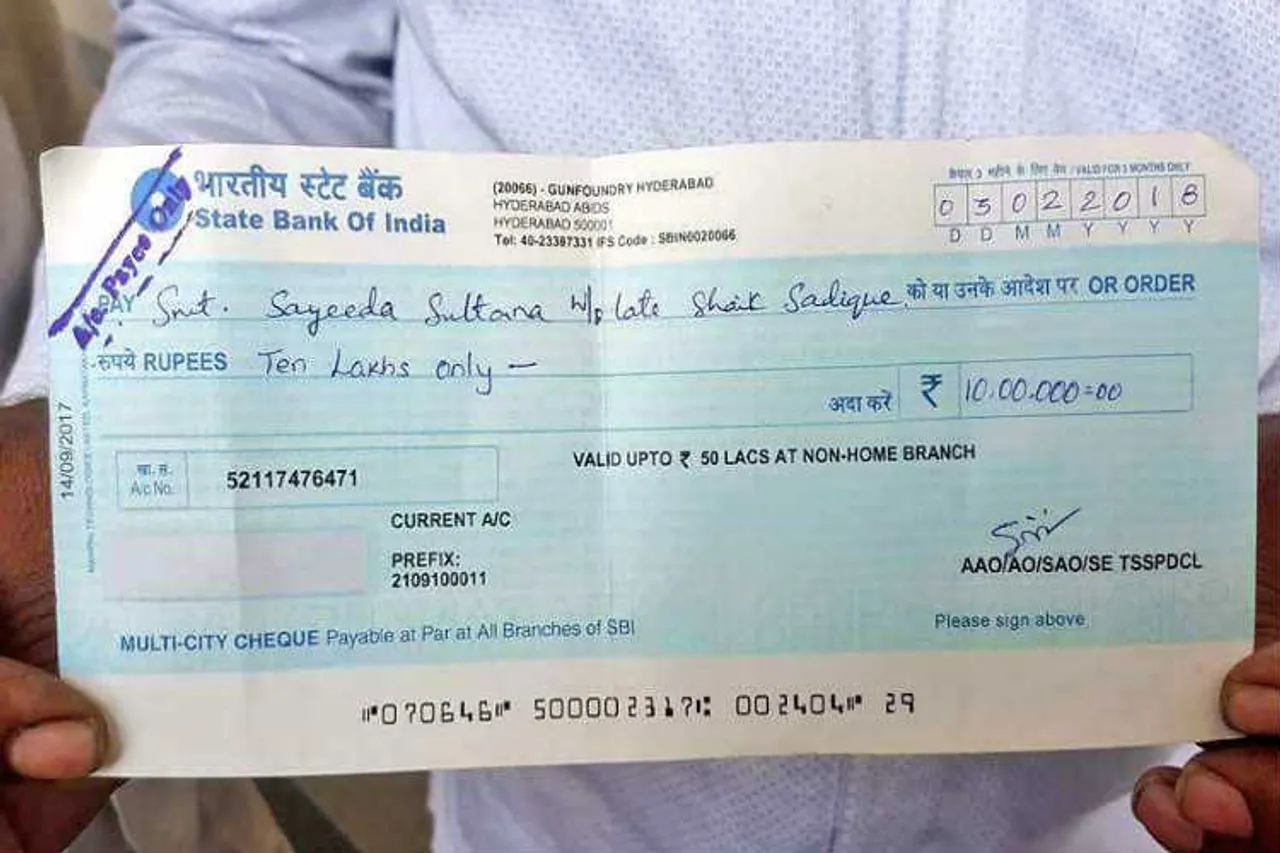 A/c. Payee Only
भारतीय स्टेट बैंक
State Bank Of India
(20066) - GUNFOUNDRY HYDERABAD
HYDERABAD ABIDS
HYDERABAD 500001
Tel: 40-23387331 IFS Code : SBIN0020066
3 महीने के लिए वैध / VALID FOR 3 MONTHS ONLY
03022018
D D M M Y Y Y Y
PAY Smt. Sayeeda Sultana W/o late Shaik Sadique को या उनके आदेश पर OR ORDER
रुपये RUPEES Ten Lakhs only —
अदा करें ₹ 10.00.000=00
14/09/2017
खा. सं.
A/c No. 52117476471
VALID UPTO ₹ 50 LACS AT NON-HOME BRANCH
CURRENT A/C
PREFIX:
2109100011
AAO/AO/SAO/SE TSSPDCL
MULTI-CITY CHEQUE Payable at Par at All Branches of SBI
Please sign above
⑈070646⑈ 500002317⑆ 002404⑈ 29